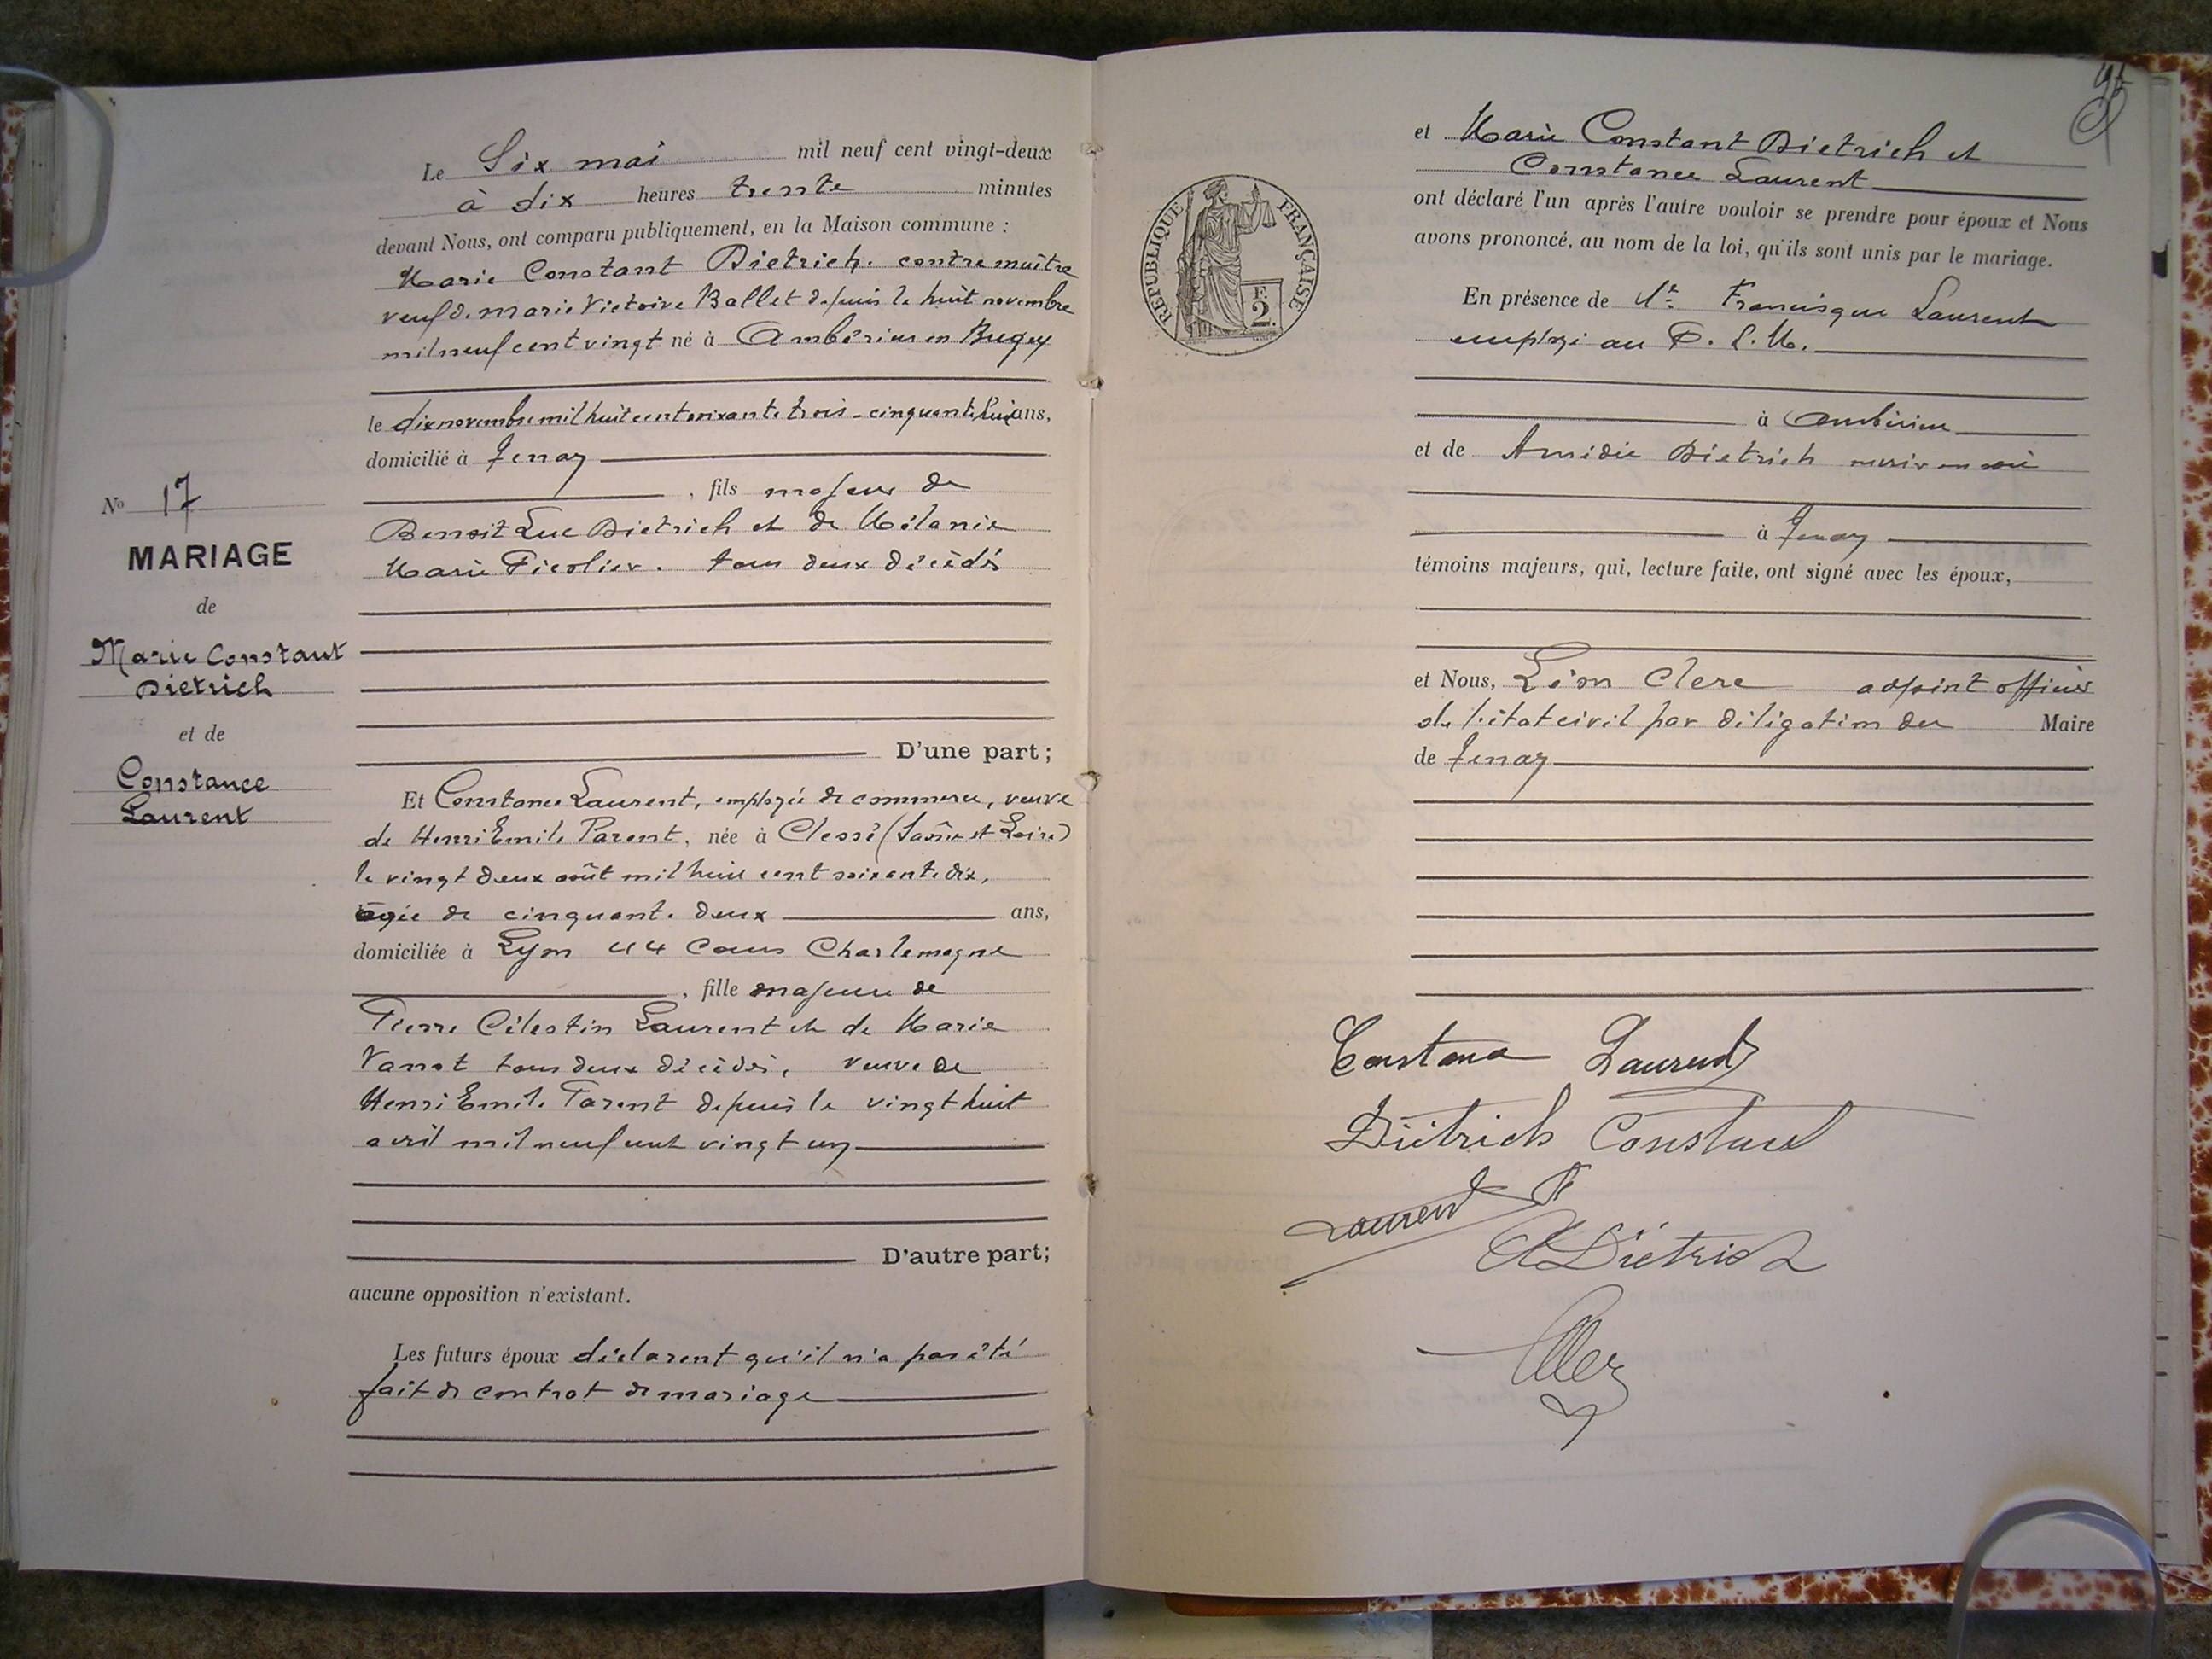 Le Six mai mil neuf cent vingt-deux
à dix heures trente minutes
devant Nous, ont comparu publiquement, en la Maison commune :
Marie Constant Dietrich. contremaître
veuf de Marie Victoire Ballet depuis le huit novembre
mil neuf cent vingt né à Ambérieu en Bugey
le dix novembre mil huit cent soixante trois - cinquante huit ans,
domicilié à Tenay
, fils majeur de
Benoit Luc Dietrich et de Mélanie
Marie Picolier. tous deux décédés
D'une part;
Et Constance Laurent, employée de commerce, veuve
de Henri Emile Parent, née à Clessé (Saône et Loire)
le vingt deux août mil huit cent soixante dix,
âgée de cinquante deux ans,
domiciliée à Lyon 44 Cours Charlemagne
, fille majeure de
Pierre Célestin Laurent et de Marie
Vanot tous deux décédés, veuve de
Henri Emile Parent depuis le vingt huit
avril mil neuf cent vingt un
D'autre part;
aucune opposition n'existant.
Les futurs époux déclarent qu'il n'a pas été
fait de contrat de mariage
No 17
MARIAGE
de
Marie Constant
Dietrich
et de
Constance
Laurent
RÉPUBLIQUE FRANÇAISE
F.
2.
et Marie Constant Dietrich et
Constance Laurent
ont déclaré l'un après l'autre vouloir se prendre pour époux et Nous
avons prononcé, au nom de la loi, qu'ils sont unis par le mariage.
En présence de Francisque Laurent
employé au P. L. M.
à Ambérieu
et de Amédée Dietrich
à Tenay
témoins majeurs, qui, lecture faite, ont signé avec les époux,
et Nous, Léon Clerc adjoint officier
de l'état civil par délégation du Maire
de Tenay
Constance Laurent
Dietrich Constant
Laurent F
A Dietrich